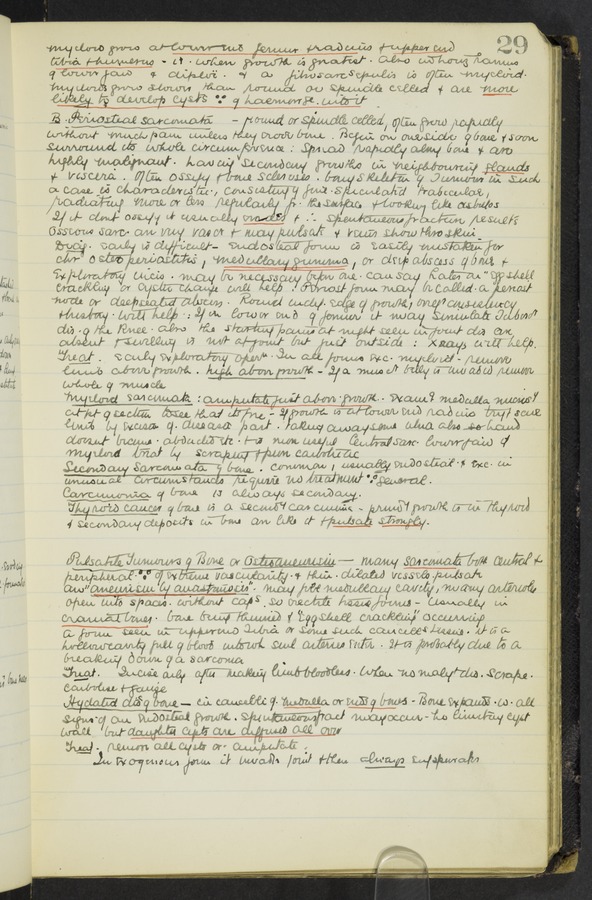 29
myeloid grows at lower end femur & radius & upper end
tibia & humerus - i.e. when growth is greatest. also in horiz ramus
of lower jaw & diploe. & a fibrosarc epulis is often myeloid.
myeloids grow slower than round or spindle celled & are more
likely to develop cysts ∵ of haemorrge into it
B. Periosteal sarcomata - round or spindle celled, often grow rapidly
without much pain unless they erode bone. Begin on one side of bone & soon
surround its whole circumference: Spread rapidly along bone & are
highly malignant. having secondary growths in neighbouring glands
& viscera. Often ossify & bone scleroses. bony skeleton of tumour in such
a case is characteristic, consisting of fine spiculated trabeculae,
radiating more or less regularly fr. the surface & looking like asbestos
If it dont ossify it usually erodes & ∴ spontaneous fracture results
Osseous sarc. are very vasc & may pulsate & veins show thro skin.
Diag. early is difficult - Endosteal form is easily mistaken for
chr osteo periostitis, medullary gumma, or deep abscess of bone &
Exploratory incis. may be necessary before one can say. Later on "Eggshell
crackling" or cystic change will help. Periost form may be called a periost
node or deepseated abscess. Round indef. edge of growth, greater consistency
& history. will help: If in lower end of femur it may simulate Tuberc
dis. of the Knee. also the starting pains at night seen in joint dis are
absent & swelling is not of joint but just outside: X rays will help.
Treat. early Exploratory oper. In all forms exc. myeloid - remove
limb above growth. high above growth - If a muscle belly is invaded remove
whole of muscle
Myeloid sarcomata: amputate just above growth. Exam medulla
at pt of section to see that its free - If growth is at lower end radius try & save
limb by excision of diseased part. taking away some ulna also so hand
doesnt become abducted etc.
myeloid treat by scraping & pure carbolic
Secondary Sarcomata of bone. common, usually endosteal & exc. in
unusual circumstances require no treatment ∵ general.
Carcinoma of bone is always secondary.
Thyroid cancer of bone is a second carcinoma - prim growth is in Thyroid
& secondary deposits in bone are like it & pulsate strongly.
Pulsatile Tumours of Bone or Osteoaneurism - many sarcomata both central &
peripheral ∵ of extreme vascularity & their dilated vessels pulsate
are "aneurism by anastmosis". may fill medullary cavity, many arterioles
open into spaces without caps, so erectile tissue forms - usually in
cranial bones. bone being thinned & "Eggshell crackling" occurring
a form seen in upper end Tibia or some such cancellous tissue. it is a
hollow cavity full of blood into wh sevl arteries enter. It is probably due to a
breaking down of a sarcoma
Treat. Incise only after making limb bloodless. When no maligt dis. scrape.
carbolise & gauze
Hydatid dis of bone - in cancellis of medulla or ends of bones - Bone expands w. all
signs of an endosteal growth. Spontaneous fract may occur - no limiting cyst
wall but daughter cysts are diffused all over
Treat. remove all cysts or amputate.
In Exogenous form it invades joint & then always suppurates